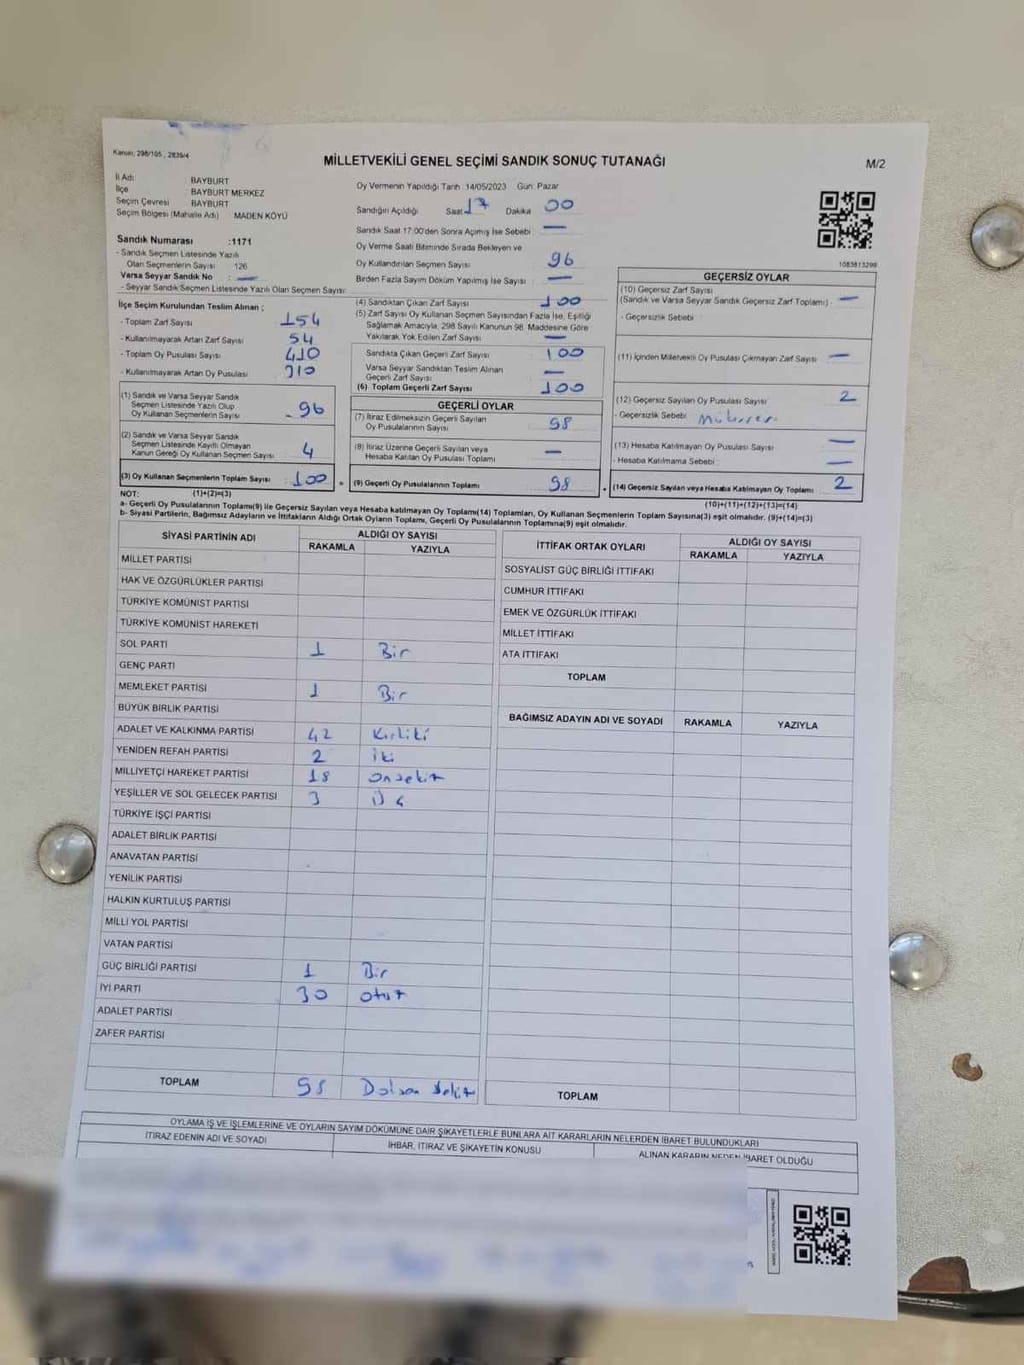 Kanun; 298/105 , 2839/4
MİLLETVEKİLİ GENEL SEÇİMİ SANDIK SONUÇ TUTANAĞI
M/2
İl Adı BAYBURT
İlçe BAYBURT MERKEZ
Seçim Çevresi BAYBURT
Seçim Bölgesi (Mahalle Adı) MADEN KÖYÜ
Sandık Numarası :1171
- Sandık Seçmen Listesinde Yazılı
Olan Seçmenlerin Sayısı 126
Varsa Seyyar Sandık No : —
- Seyyar Sandık Seçmen Listesinde Yazılı Olan Seçmen Sayısı:
Oy Vermenin Yapıldığı Tarih :14/05/2023 Gün: Pazar
Sandığın Açıldığı Saat 17 Dakika 00
Sandık Saat 17:00'den Sonra Açılmış İse Sebebi —
Oy Verme Saati Bitiminde Sırada Bekleyen ve
Oy Kullandırılan Seçmen Sayısı 96
Birden Fazla Sayım Döküm Yapılmış İse Sayısı : —
1083813299
İlçe Seçim Kurulundan Teslim Alınan ;
- Toplam Zarf Sayısı 154
- Kullanılmayarak Artan Zarf Sayısı 54
- Toplam Oy Pusulası Sayısı 410
- Kullanılmayarak Artan Oy Pusulası 310
(1) Sandık ve Varsa Seyyar Sandık
Seçmen Listesinde Yazılı Olup
Oy Kullanan Seçmenlerin Sayısı 96
(2) Sandık ve Varsa Seyyar Sandık
Seçmen Listesinde Kayıtlı Olmayan
Kanun Gereği Oy Kullanan Seçmen Sayısı 4
(3) Oy Kullanan Seçmenlerin Toplam Sayısı 100
(4) Sandıktan Çıkan Zarf Sayısı 100
(5) Zarf Sayısı Oy Kullanan Seçmen Sayısından Fazla İse, Eşitliği
Sağlamak Amacıyla, 298 Sayılı Kanunun 98. Maddesine Göre
Yakılarak Yok Edilen Zarf Sayısı —
Sandıkta Çıkan Geçerli Zarf Sayısı 100
Varsa Seyyar Sandıktan Teslim Alınan
Geçerli Zarf Sayısı —
(6) Toplam Geçerli Zarf Sayısı 100
GEÇERLİ OYLAR
(7) İtiraz Edilmeksizin Geçerli Sayılan
Oy Pusulalarının Sayısı 98
(8) İtiraz Üzerine Geçerli Sayılan veya
Hesaba Katılan Oy Pusulası Toplamı —
= (9) Geçerli Oy Pusulalarının Toplamı 98
GEÇERSİZ OYLAR
(10) Geçersiz Zarf Sayısı
(Sandık ve Varsa Seyyar Sandık Geçersiz Zarf Toplamı) —
- Geçersizlik Sebebi
(11) İçinden Milletvekili Oy Pusulası Çıkmayan Zarf Sayısı —
(12) Geçersiz Sayılan Oy Pusulası Sayısı 2
- Geçersizlik Sebebi
(13) Hesaba Katılmayan Oy Pusulası Sayısı —
- Hesaba Katılmama Sebebi : —
+ (14) Geçersiz Sayılan veya Hesaba Katılmayan Oy Toplamı 2
NOT: (1)+(2)=(3)
(10)+(11)+(12)+(13)=(14)
a- Geçerli Oy Pusulalarının Toplamı(9) ile Geçersiz Sayılan veya Hesaba katılmayan Oy Toplamı(14) Toplamları, Oy Kullanan Seçmenlerin Toplam Sayısına(3) eşit olmalıdır. (9)+(14)=(3)
b- Siyasi Partilerin, Bağımsız Adayların ve İttifakların Aldığı Ortak Oyların Toplamı, Geçerli Oy Pusulalarının Toplamına(9) eşit olmalıdır.
SİYASİ PARTİNİN ADI ALDIĞI OY SAYISI
RAKAMLA YAZIYLA
MİLLET PARTİSİ
HAK VE ÖZGÜRLÜKLER PARTİSİ
TÜRKİYE KOMÜNİST PARTİSİ
TÜRKİYE KOMÜNİST HAREKETİ
SOL PARTİ 1 Bir
GENÇ PARTİ
MEMLEKET PARTİSİ 1 Bir
BÜYÜK BİRLİK PARTİSİ
ADALET VE KALKINMA PARTİSİ 42 Kırkiki
YENİDEN REFAH PARTİSİ 2 iki
MİLLİYETÇİ HAREKET PARTİSİ 18 onsekiz
YEŞİLLER VE SOL GELECEK PARTİSİ 3 Üç
TÜRKİYE İŞÇİ PARTİSİ
ADALET BİRLİK PARTİSİ
ANAVATAN PARTİSİ
YENİLİK PARTİSİ
HALKIN KURTULUŞ PARTİSİ
MİLLİ YOL PARTİSİ
VATAN PARTİSİ
GÜÇ BİRLİĞİ PARTİSİ 1 Bir
İYİ PARTİ 30 otuz
ADALET PARTİSİ
ZAFER PARTİSİ
TOPLAM 98 Doksan sekiz
İTTİFAK ORTAK OYLARI ALDIĞI OY SAYISI
RAKAMLA YAZIYLA
SOSYALİST GÜÇ BİRLİĞİ İTTİFAKI
CUMHUR İTTİFAKI
EMEK VE ÖZGÜRLÜK İTTİFAKI
MİLLET İTTİFAKI
ATA İTTİFAKI
TOPLAM
BAĞIMSIZ ADAYIN ADI VE SOYADI RAKAMLA YAZIYLA
TOPLAM
OYLAMA İŞ VE İŞLEMLERİNE VE OYLARIN SAYIM DÖKÜMÜNE DAİR ŞİKAYETLERLE BUNLARA AİT KARARLARIN NELERDEN İBARET BULUNDUKLARI
İTİRAZ EDENİN ADI VE SOYADI İHBAR, İTİRAZ VE ŞİKAYETİN KONUSU ALINAN KARARIN NEDEN İBARET OLDUĞU